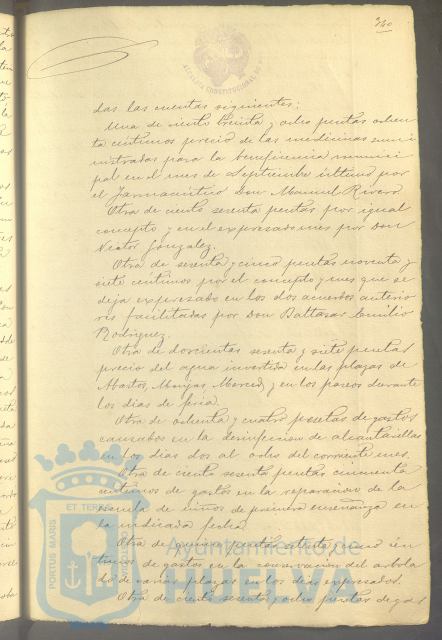 340
ALCALDIA CONSTITUCIONAL
das las cuentas siguientes:
Una de ciento treinta y ocho pesetas ochen
ta céntimos precio de las medicinas sumi
nistradas para la beneficencia munici
pal en el mes de Septiembre último por
el Farmacéutico Don Manuel Rivero
Otra de ciento sesenta pesetas por igual
concepto y en el expresado mes por Don
Nestor Gonzalez.
Otra de sesenta y cinco pesetas noventa y
siete céntimos por el concepto y mes que se
deja expresado en los dos acuerdos anterio
res facilitadas por Don Baltasar Emilio
Rodriguez.
Otra de doscientas sesenta y siete pesetas
precio del agua invertida en las plazas de
Abastos, Monjas, Merced, y en los paseos durante
los dias de feria.
Otra de ochenta y cuatro pesetas de gastos
causados en la desinfeccion de alcantarillas
en los dias dos al ocho del corriente mes.
Otra de ciento sesenta pesetas cincuenta
céntimos de gastos en la reparacion de la
escuela de niños de primera enseñanza en
la indicada fecha.
Otra de quince pesetas cén
timos de gastos en la conservacion del arbola
do de varias plazas en los dias expresados.
Otra de ciento sesenta y ocho pesetas de gas
PORTUS MARIS ET TERRAE CUSTODIA
Ayuntamiento de
HUELVA